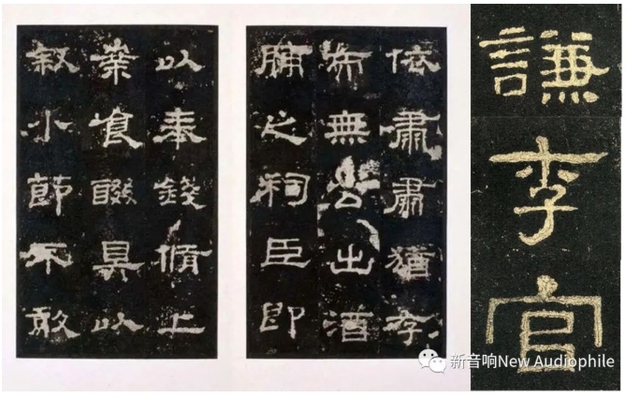 依肅肅猶存
而無公出酒
脯之祠臣即
以奉錢脩上
案食醊具以
叙小節不敢
謙李官
新音响New Audiophile